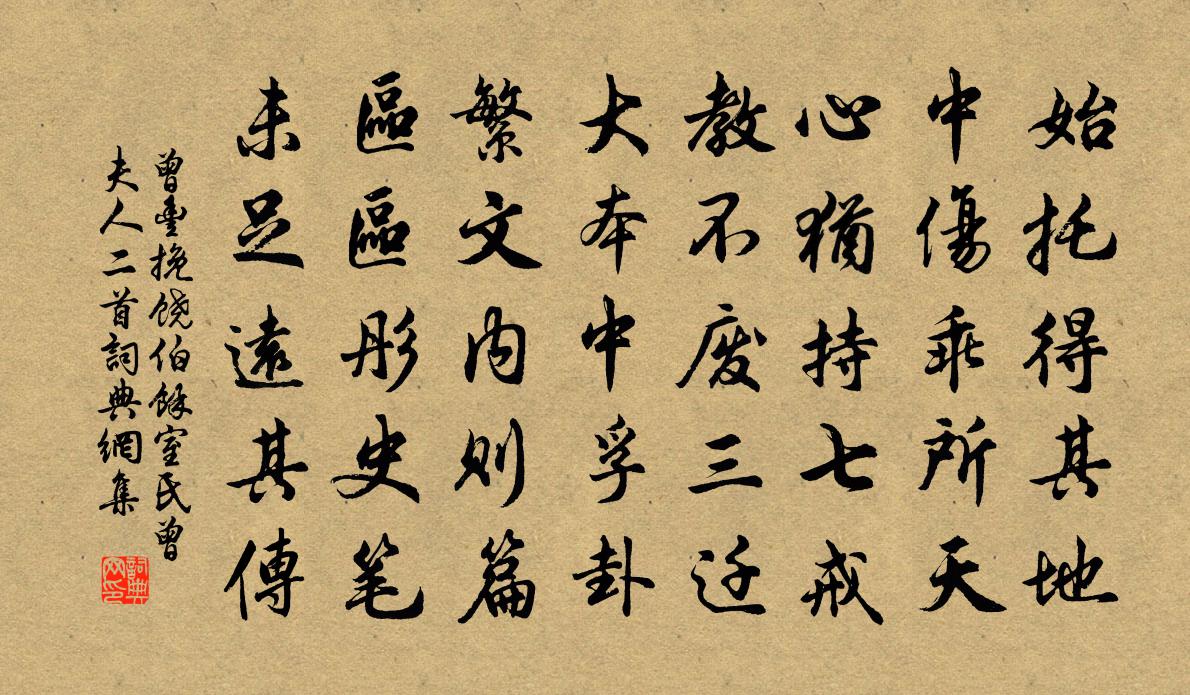 始托得其地
中傷乖所天
心猶持七戒
教不废三迁
大本中孚卦
繁文内则篇
區區彤史笔
未足遠其傳
曾豐挽饶伯餘室氏曾
夫人二首詞典網集
詞典网印